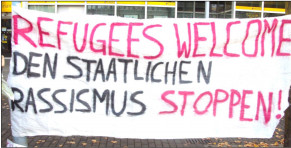 REFUGEES WELCOME
DEN STAATLICHEN
RASSISMUS STOPPEN!